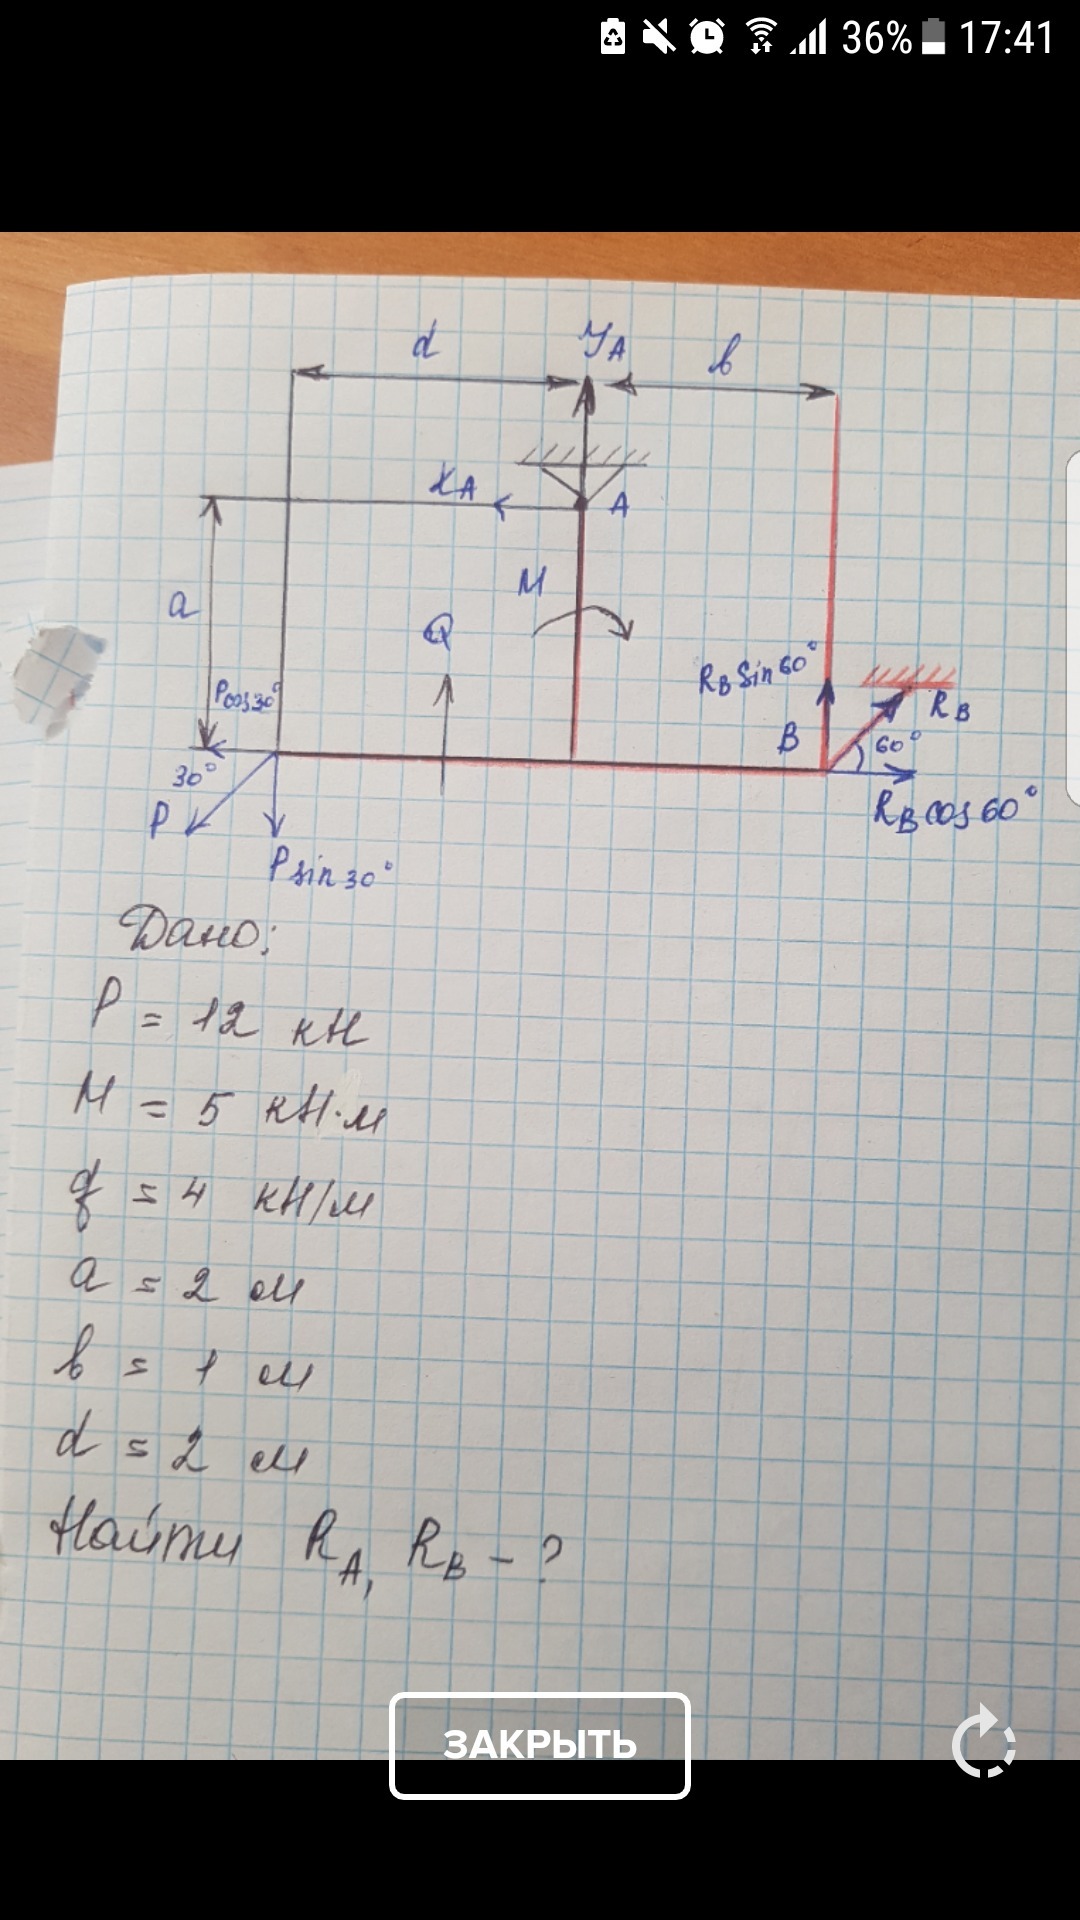 36% 17:41
d
YA
в
XA
A
M
a
Q
Pcos30°
RB sin60°
RB
B
60°
30°
P
RB cos60°
P sin30°
Дано:
P = 12 кН
M = 5 кН·м
q = 4 кН/м
a = 2 м
в = 1 м
d = 2 м
Найти RA, RB - ?
ЗАКРЫТЬ